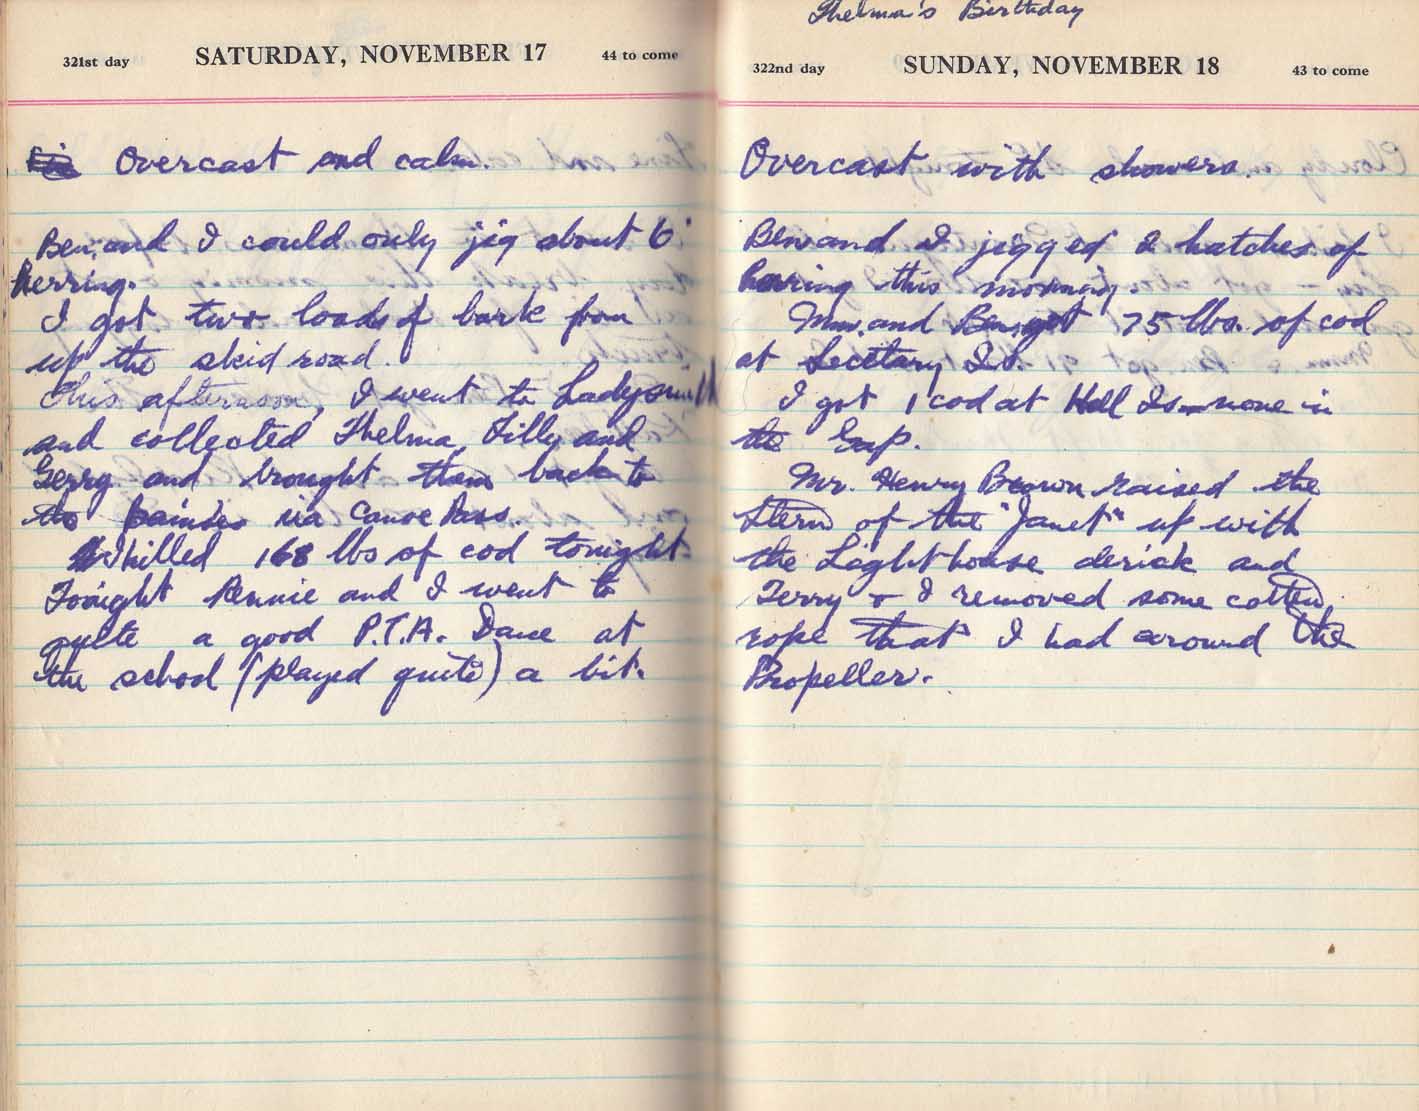 321st day SATURDAY, NOVEMBER 17 44 to come
Overcast and calm.
Ben and I could only jig about 6
herring.
I got two loads of bark from
up the skid road.
This afternoon, I went to Ladysmith
and collected Thelma, Tilly and
Gerry and brought them back to
the via Canoe Pass
I killed 168 lbs of cod tonight
Tonight Rennie and I went to
quite a good P.T.A. Dance at
the school (played quite) a bit.
Thelma's Birthday
322nd day SUNDAY, NOVEMBER 18 43 to come
Overcast with showers.
Ben and I jigged 2 hatches of
herring this morning.
Mm. and Ben got 75 lbs. of cod
at Secetary Is.
I got 1 cod at Hall Is. none in
the Gap.
Mr. Henry Brown raised the
Stern of the "Janet" up with
the Lighthouse derick and
Terry & I removed some cotton
rope that I had around the
Propeller.